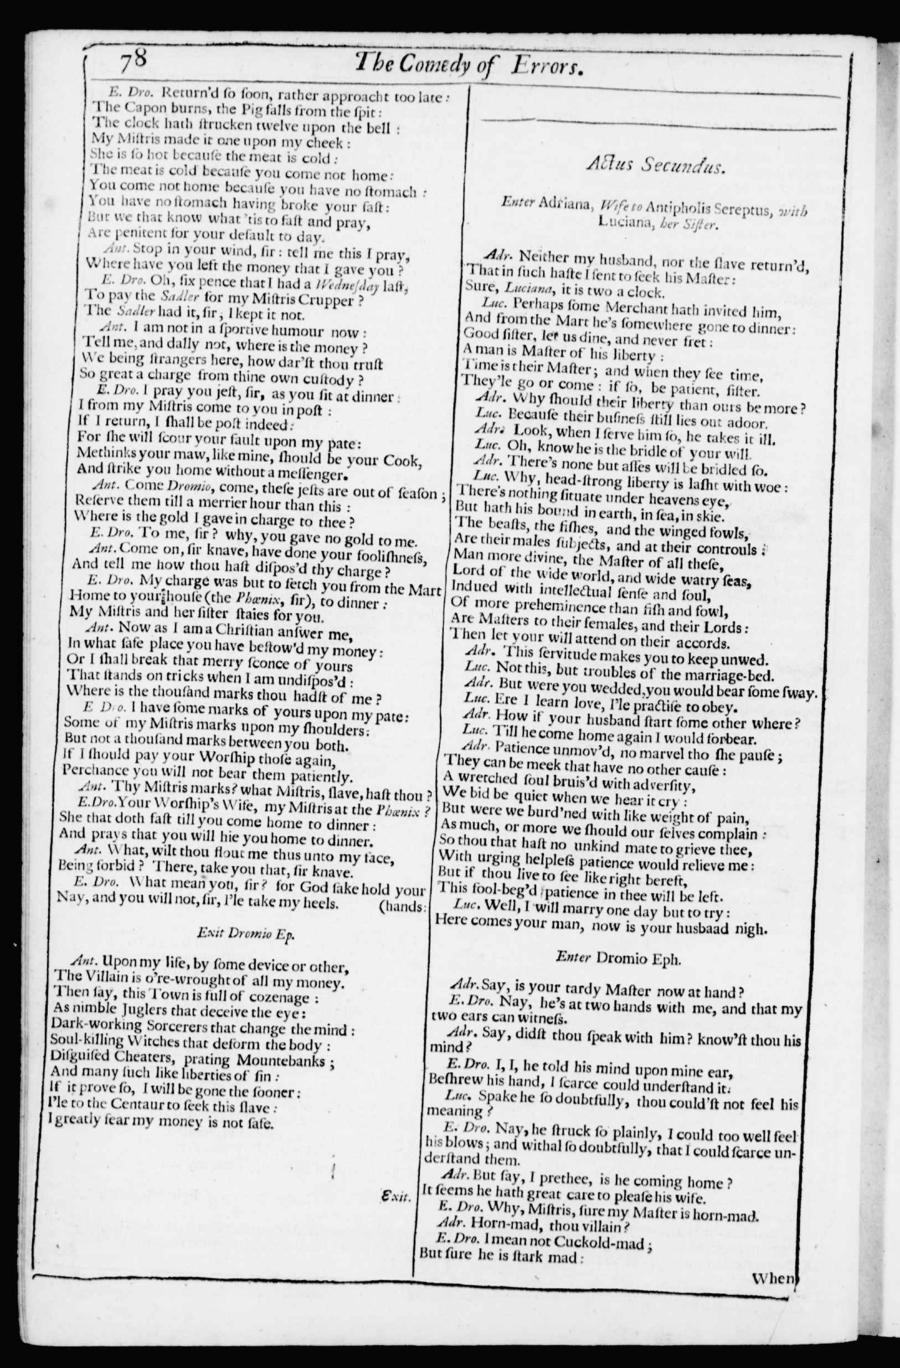 78
The Comedy of Errors.
E. Dro. Return'd ſo ſoon, rather approacht too late:
The Capon burns, the Pig falls from the ſpit:
The clock hath ſtrucken twelve upon the bell :
My Miſtris made it one upon my cheek :
She is ſo hot becauſe the meat is cold :
The meat is cold becauſe you come not home:
You come not home becauſe you have no ſtomach :
You have no ſtomach having broke your faſt:
But we that know what 'tis to faſt and pray,
Are penitent for your default to day.
Ant. Stop in your wind, ſir : tell me this I pray,
Where have you left the money that I gave you ?
E. Dro. Oh, ſix pence that I had a Wedneſday laſt,
To pay the Sadler for my Miſtris Crupper ?
The Sadler had it, ſir, I kept it not.
Ant. I am not in a ſportive humour now :
Tell me, and dally not, where is the money ?
We being ſtrangers here, how dar'ſt thou truſt
So great a charge from thine own cuſtody ?
E. Dro. I pray you jeſt, ſir, as you ſit at dinner :
I from my Miſtris come to you in poſt :
If I return, I ſhall be poſt indeed:
For ſhe will ſcour your fault upon my pate:
Methinks your maw, like mine, ſhould be your Cook,
And ſtrike you home without a meſſenger.
Ant. Come Dromio, come, theſe jeſts are out of ſeaſon ;
Reſerve them till a merrier hour than this :
Where is the gold I gave in charge to thee ?
E. Dro. To me, ſir ? why, you gave no gold to me.
Ant. Come on, ſir knave, have done your fooliſhneſs,
And tell me how thou haſt diſpos'd thy charge ?
E. Dro. My charge was but to fetch you from the Mart
Home to your houſe (the Phœnix, ſir), to dinner :
My Miſtris and her ſiſter ſtaies for you.
Ant. Now as I am a Chriſtian anſwer me,
In what ſafe place you have beſtow'd my money :
Or I ſhall break that merry ſconce of yours
That ſtands on tricks when I am undiſpos'd :
Where is the thouſand marks thou hadſt of me ?
E Dro. I have ſome marks of yours upon my pate:
Some of my Miſtris marks upon my ſhoulders:
But not a thouſand marks between you both.
If I ſhould pay your Worſhip thoſe again,
Perchance you will not bear them patiently.
Ant. Thy Miſtris marks? what Miſtris, ſlave, haſt thou ?
E.Dro.Your Worſhip's Wife, my Miſtris at the Phœnix ?
She that doth faſt till you come home to dinner :
And prays that you will hie you home to dinner.
Ant. What, wilt thou flout me thus unto my face,
Being forbid ? There, take you that, ſir knave.
E. Dro. What mean you, ſir ? for God ſake hold your
Nay, and you will not, ſir, I'le take my heels. (hands:
Exit Dromio Ep.
Ant. Upon my life, by ſome device or other,
The Villain is o're-wrought of all my money.
Then ſay, this Town is full of cozenage :
As nimble Juglers that deceive the eye :
Dark-working Sorcerers that change the mind :
Soul-killing Witches that deform the body :
Diſguiſed Cheaters, prating Mountebanks ;
And many ſuch like liberties of ſin :
If it prove ſo, I will be gone the ſooner:
I'le to the Centaur to ſeek this ſlave :
I greatly fear my money is not ſafe.
Exit.
Actus Secundus.
Enter Adriana, Wife to Antipholis Sereptus, with
Luciana, her Siſter.
Adr. Neither my husband, nor the ſlave return'd,
That in ſuch haſte I ſent to ſeek his Maſter :
Sure, Luciana, it is two a clock.
Luc. Perhaps ſome Merchant hath invited him,
And from the Mart he's ſomewhere gone to dinner :
Good ſiſter, let us dine, and never fret :
A man is Maſter of his liberty :
Time is their Maſter; and when they ſee time,
They'le go or come : if ſo, be patient, ſiſter.
Adr. Why ſhould their liberty than ours be more ?
Luc. Becauſe their buſineſs ſtill lies out adoor.
Adr. Look, when I ſerve him ſo, he takes it ill.
Luc. Oh, know he is the bridle of your will.
Adr. There's none but aſſes will be bridled ſo.
Luc. Why, head-ſtrong liberty is laſht with woe :
There's nothing ſituate under heavens eye,
But hath his bound in earth, in ſea, in skie.
The beaſts, the fiſhes, and the winged fowls,
Are their males ſubjects, and at their controuls :
Man more divine, the Maſter of all theſe,
Lord of the wide world, and wide watry ſeas,
Indued with intellectual ſenſe and ſoul,
Of more preheminence than fiſh and fowl,
Are Maſters to their females, and their Lords :
Then let your will attend on their accords.
Adr. This ſervitude makes you to keep unwed.
Luc. Not this, but troubles of the marriage-bed.
Adr. But were you wedded, you would bear ſome ſway.
Luc. Ere I learn love, I'le practiſe to obey.
Adr. How if your husband ſtart ſome other where ?
Luc. Till he come home again I would forbear.
Adr. Patience unmov'd, no marvel tho ſhe pauſe ;
They can be meek that have no other cauſe :
A wretched ſoul bruis'd with adverſity,
We bid be quiet when we hear it cry :
But were we burd'ned with like weight of pain,
As much, or more we ſhould our ſelves complain :
So thou that haſt no unkind mate to grieve thee,
With urging helpleſs patience would relieve me :
But if thou live to ſee like right bereft,
This fool-beg'd patience in thee will be left.
Luc. Well, I will marry one day but to try :
Here comes your man, now is your husbaad nigh.
Enter Dromio Eph.
Adr. Say, is your tardy Maſter now at hand ?
E. Dro. Nay, he's at two hands with me, and that my
two ears can witneſs.
Adr. Say, didſt thou ſpeak with him? know'ſt thou his
mind ?
E. Dro. I, I, he told his mind upon mine ear,
Beſhrew his hand, I ſcarce could underſtand it.
Luc. Spake he ſo doubtfully, thou could'ſt not feel his
meaning ?
E. Dro. Nay, he ſtruck ſo plainly, I could too well feel
his blows; and withal ſo doubtfully, that I could ſcarce un-
derſtand them.
Adr. But ſay, I prethee, is he coming home ?
It ſeems he hath great care to pleaſe his wife.
E. Dro. Why, Miſtris, ſure my Maſter is horn-mad.
Adr. Horn-mad, thou villain ?
E. Dro. I mean not Cuckold-mad ;
But ſure he is ſtark mad :
When